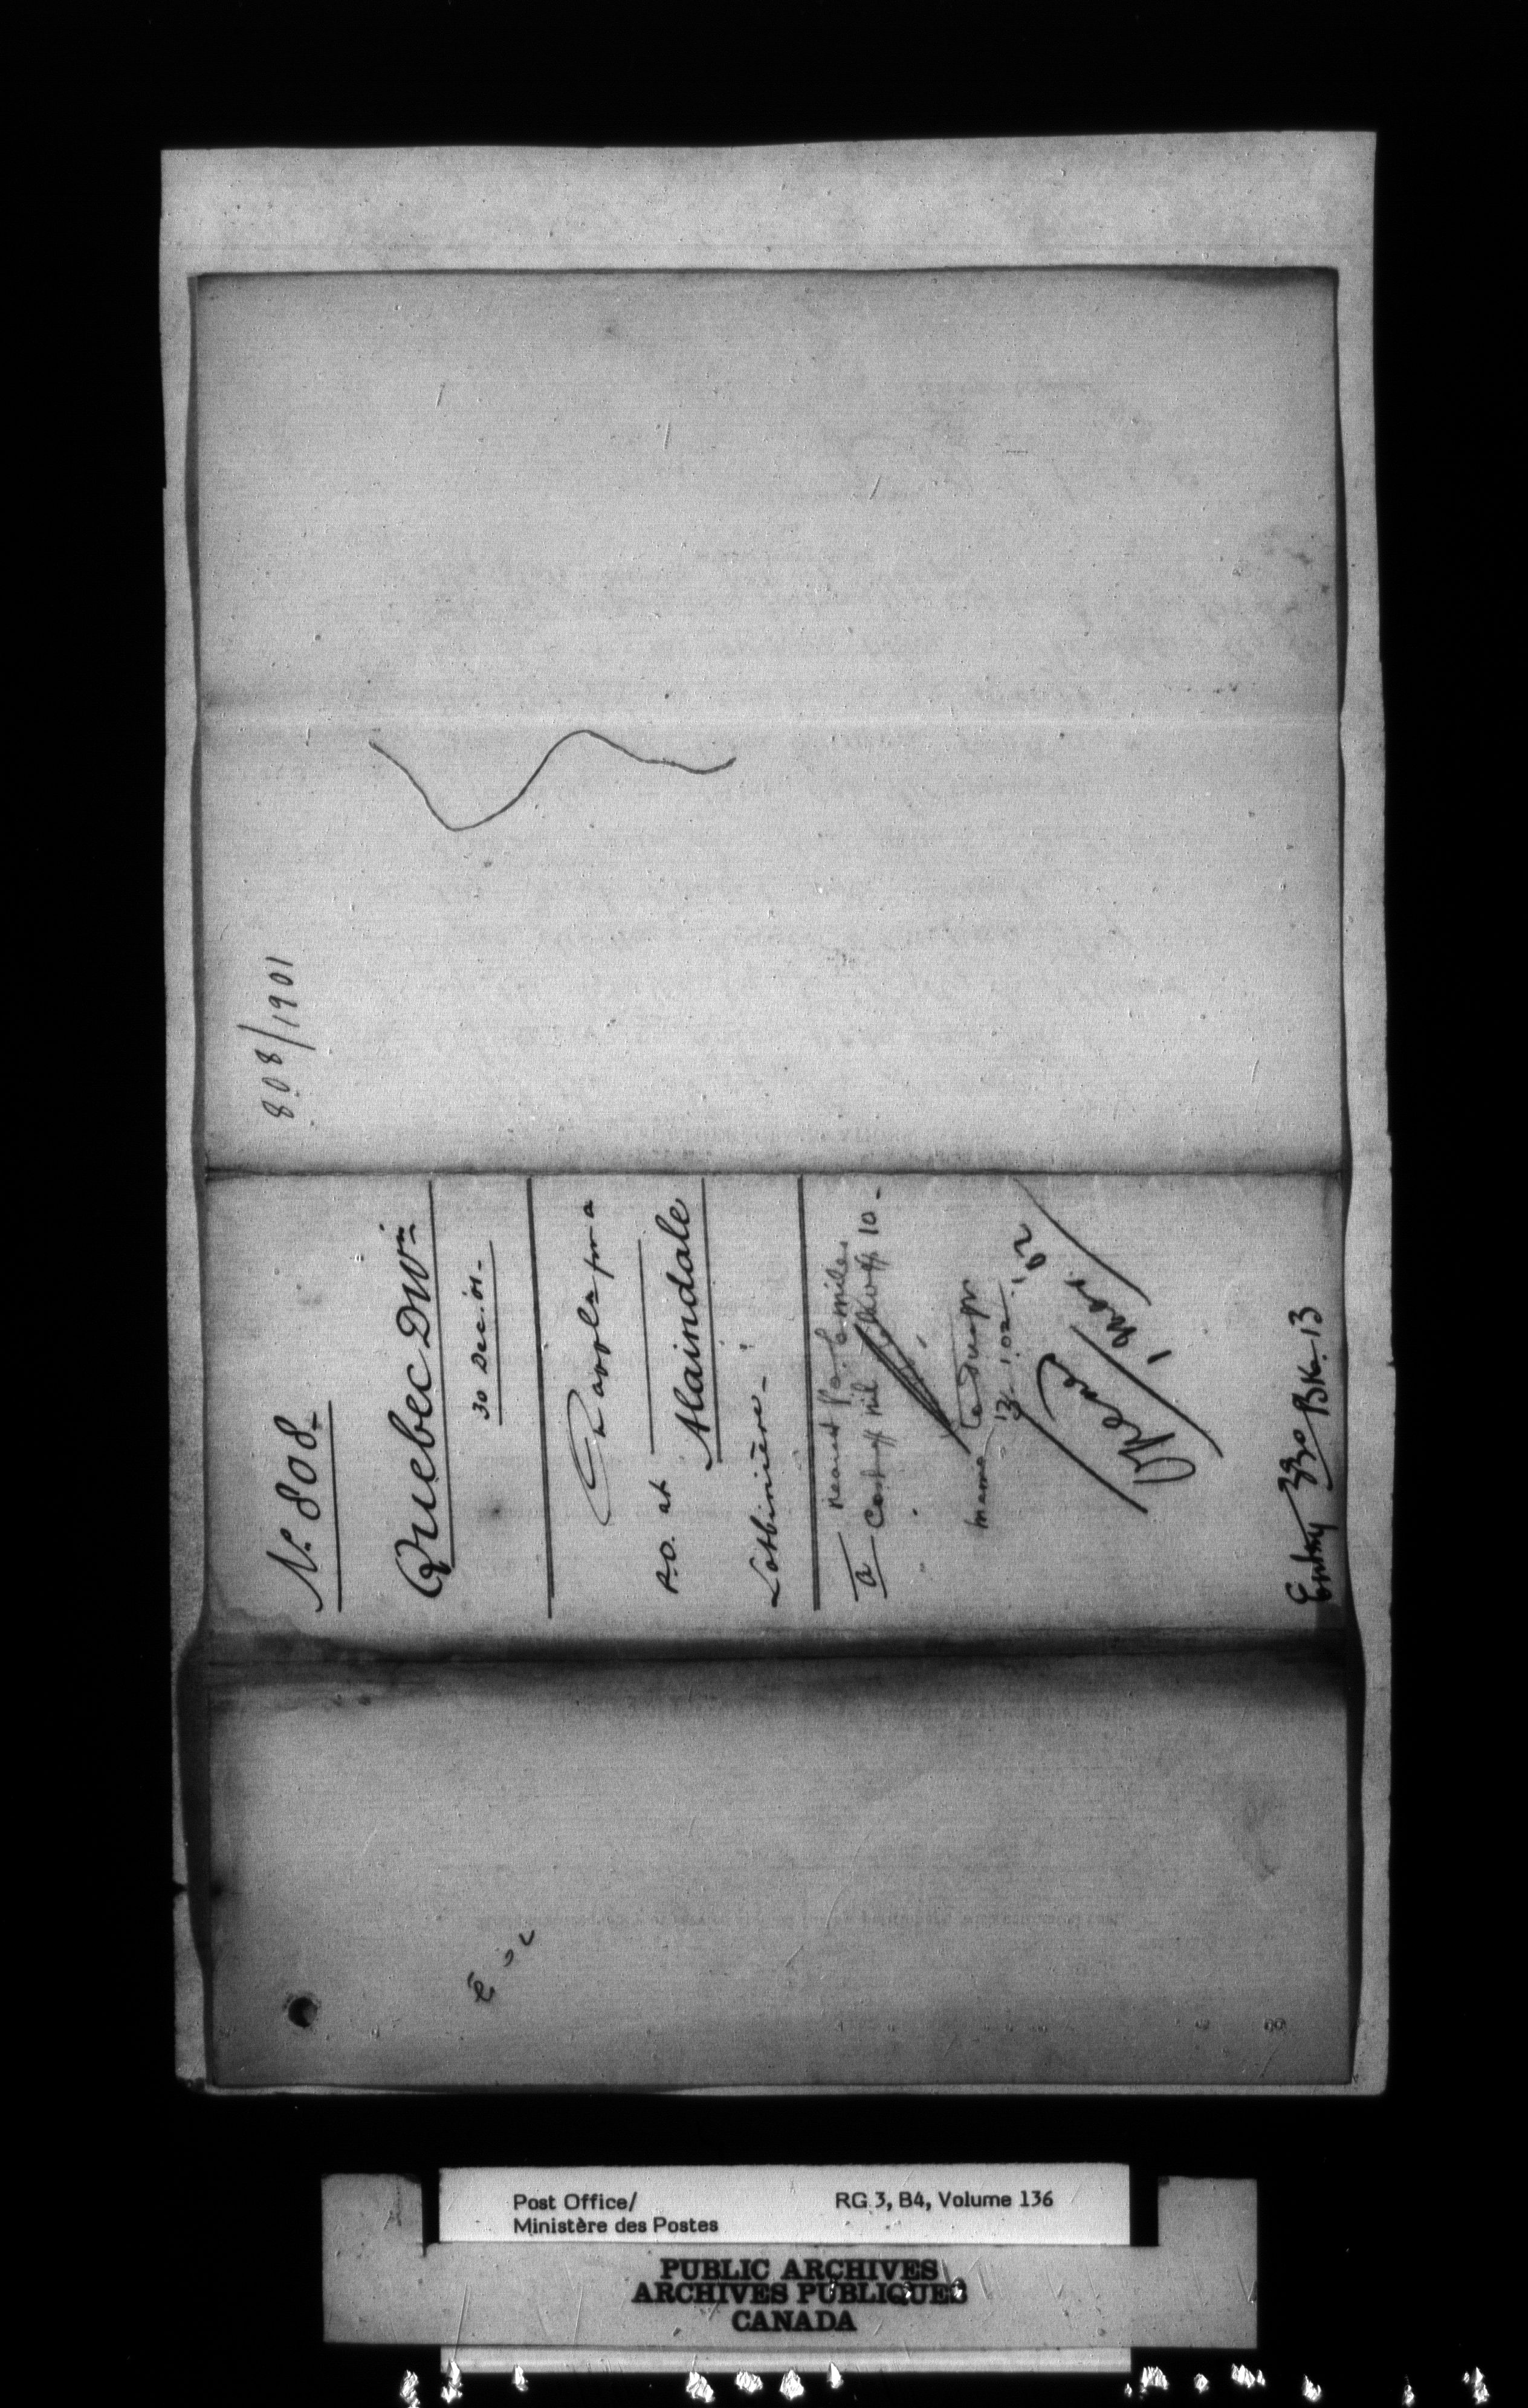 808/1901
No. 808
Quebec Divn
30 Dec. 01.
On appln for a
P.O. at
Alaindale
Lotbinière
a nearest P.O. 6 miles
Cost off nil 10
memo
13.1.02
Open
1 '02
Entry 330 Bk. 13
Post Office/
Ministère des Postes
RG 3, B4, Volume 136
PUBLIC ARCHIVES
ARCHIVES PUBLIQUES
CANADA